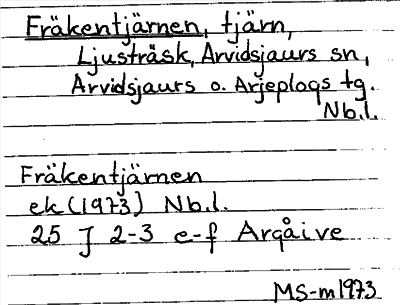 Fräkentjärnen, tjärn,
Ljusträsk, Arvidsjaurs sn,
Arvidsjaurs o. Arjeplogs tg.
Nb.l.
Fräkentjärnen
ek (1973) Nb.l.
25 J 2-3 e-f Argåive
MS-m 1973